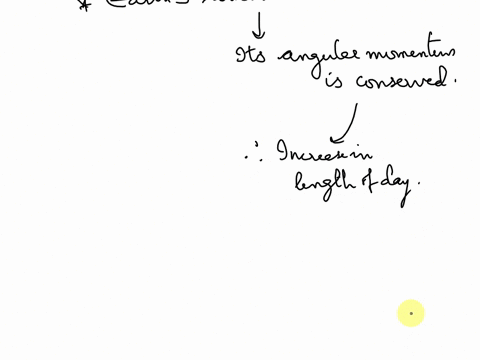 Its angular momentum
is conserved.
∴ Increase in
length of day.